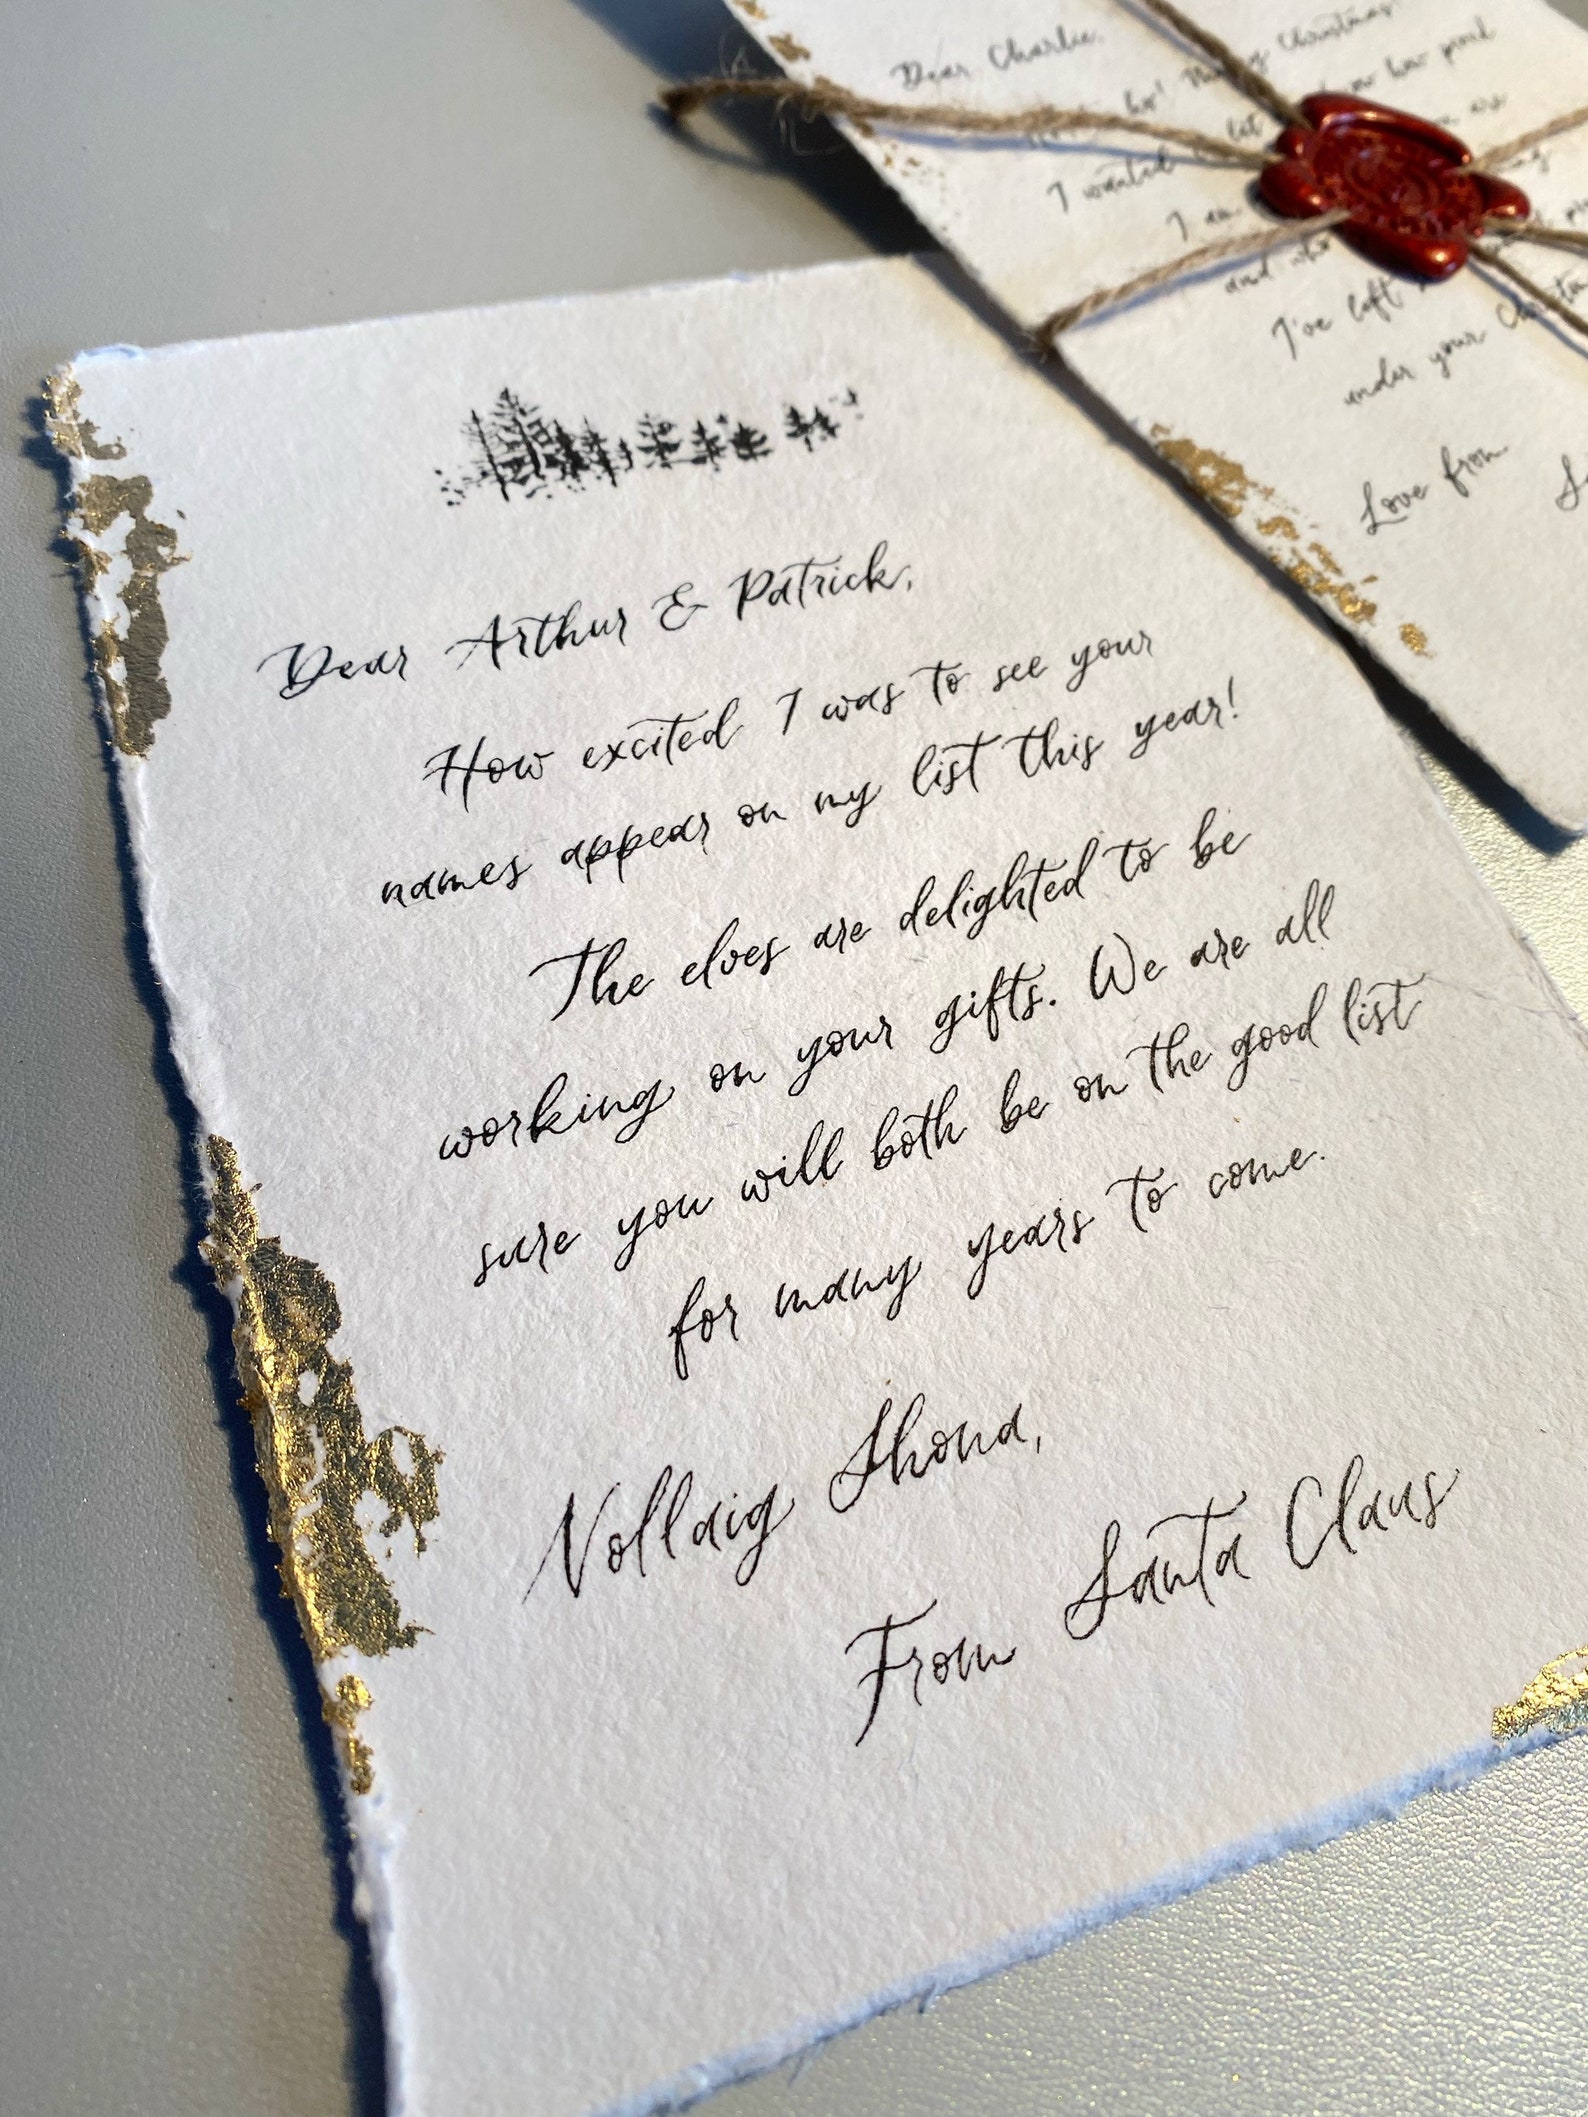 Dear Arthur & Patrick,
How excited I was to see your
names appear on my list this year!
The elves are delighted to be
working on your gifts. We are all
sure you will both be on the good list
for many years to come.
Nollaig Shona,
From Santa Claus
Dear Charlie,
Christmas!
I wanted let how proud
I am are
and
I've left
under your
Love from